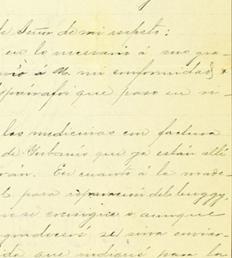 de Señor de mi respeto:
en lo necesario á sus gra-
envio á U. mi conformidad, y
que paso en n-
las medicinas con factura
de Urbanis que ya están allí
ran. En cuanto á la made-
para reparacion del buggy,
si se consigue ó aunque
agradeceré se sirva envian-
que indiqué para la